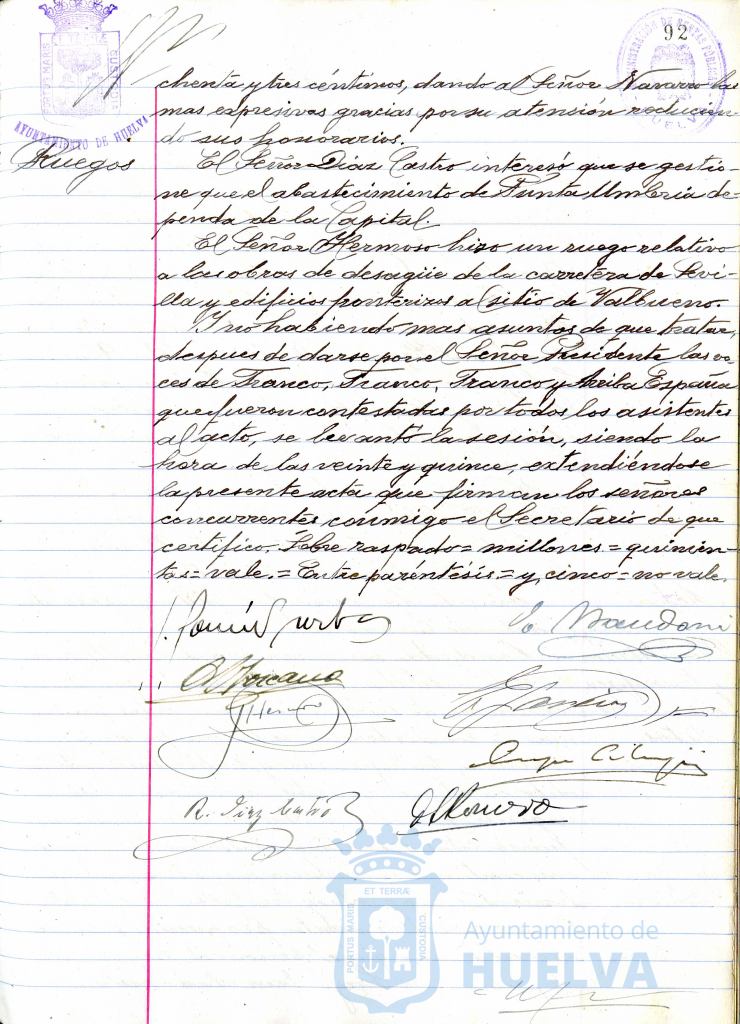 92
AYUNTAMIENTO DE HUELVA
PORTUS MARIS
CUSTODIA
chenta y tres céntimos, dando al Señor Navarro las
mas expresivas gracias por su atención reducien-
do sus honorarios.
Ruegos
El Señor Díaz Castro interesó que se gestio-
ne que el abastecimiento de Punta Umbria de-
penda de la Capital.
El Señor Hermoso hizo un ruego relativo
a las obras de desagüe de la carretera de Sevi-
lla y edificios fronterizos al sitio de Valbueno.
Y no habiendo mas asuntos de que tratar,
despues de darse por el Señor Presidente las vo-
ces de Franco, Franco, Franco y Arriba España
que fueron contestadas por todos los asistentes
al acto, se levantó la sesión, siendo la
hora de las veinte y quince, extendiéndose
la presente acta que firman los señores
concurrentes conmigo el Secretario de que
certifico. Sobre raspado = millones = quinien-
tas = vale. = Entre paréntesis = y cinco = no vale.
R. Diaz Castro
ET TERRÆ
PORTUS MARIS
CUSTODIA
Ayuntamiento de
HUELVA